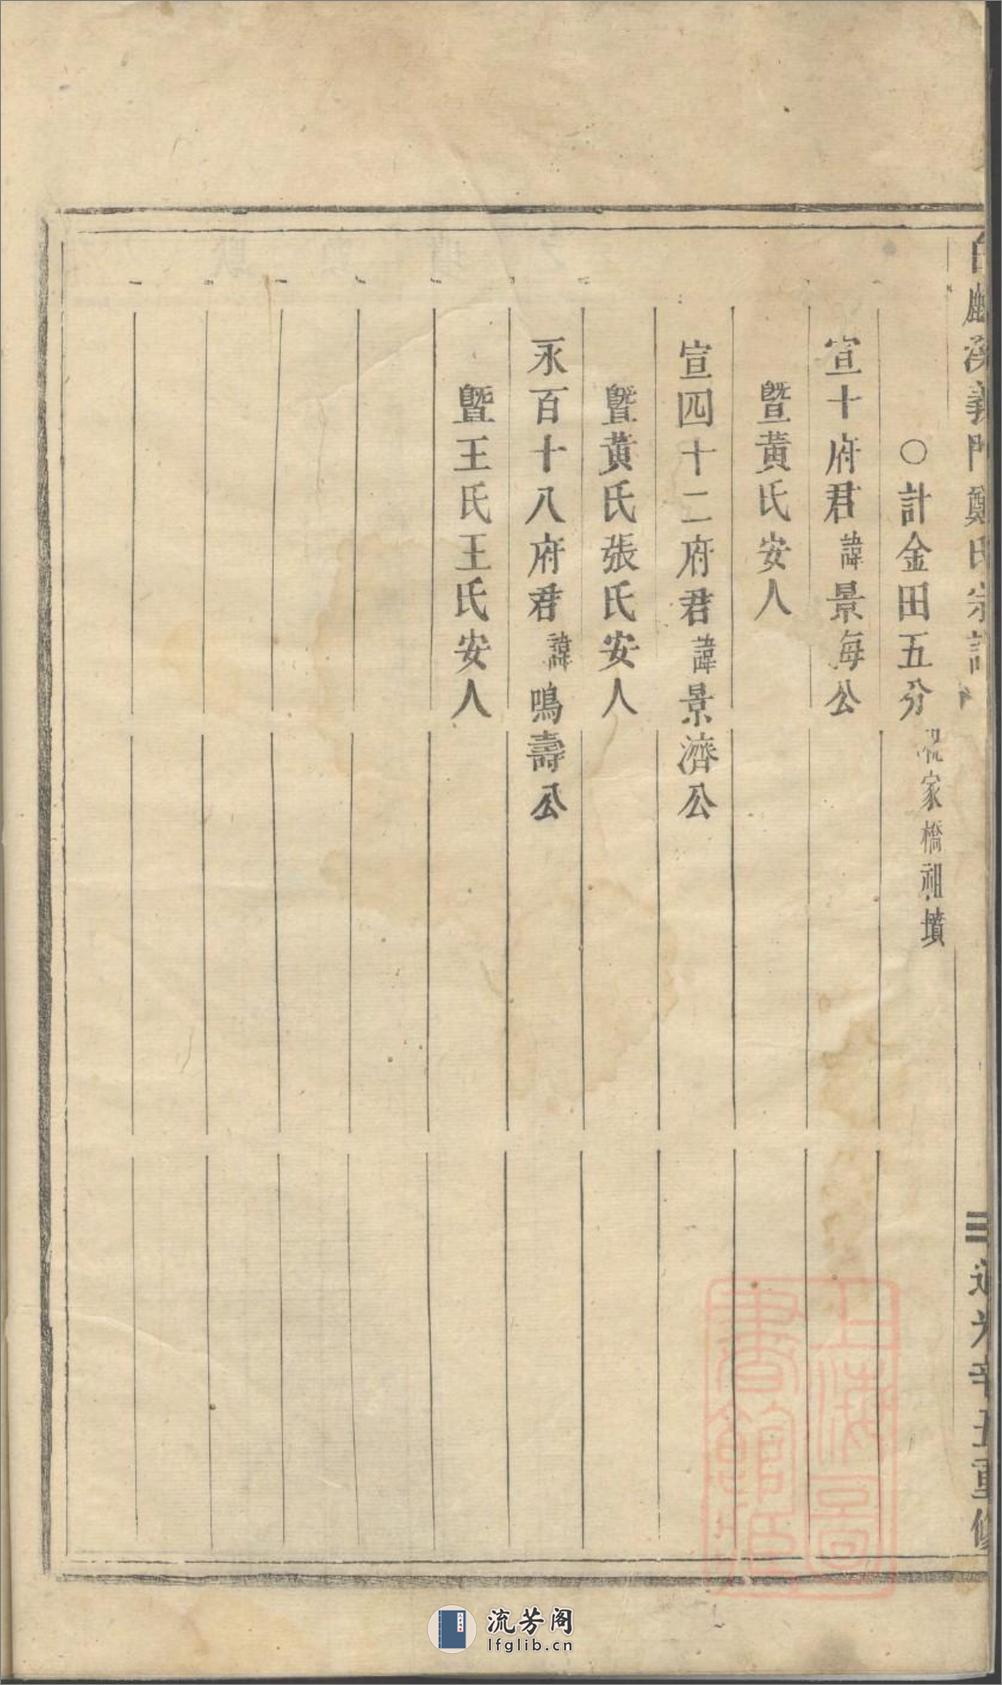 白麟溪義門鄭氏宗譜
三 道光辛丑重修
○計金田五分 祝家橋祖墳
宣十府君諱景海公
暨黄氏安人
宣四十二府君諱景濟公
暨黄氏張氏安人
永百十八府君諱鳴壽公
暨王氏王氏安人
上海圖
書館藏
流芳阁
lfglib.cn